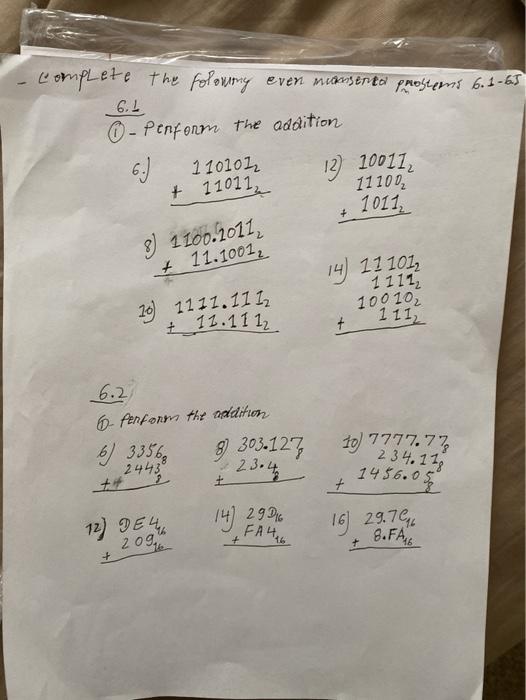 - Complete the following even numbered problems 6.1-6.5
6.1
① - Perform the addition
6.) 110101₂
+ 11011₂
12) 10011₂
11100₂
+ 1011₂
8) 1100.1011₂
+ 11.1001₂
14) 11101₂
1111₂
10010₂
+ 111₂
10) 1111.111₂
+ 11.111₂
6.2
①- Perform the addition
6) 3356₈
+ 2443₈
8) 303.127₈
+ 23.4₈
10) 7777.77₈
234.11₈
+ 1456.05₈
12) DE4₁₆
+ 209₁₆
14) 29D₁₆
+ FA4₁₆
16) 29.7C₁₆
+ 8.FA₁₆